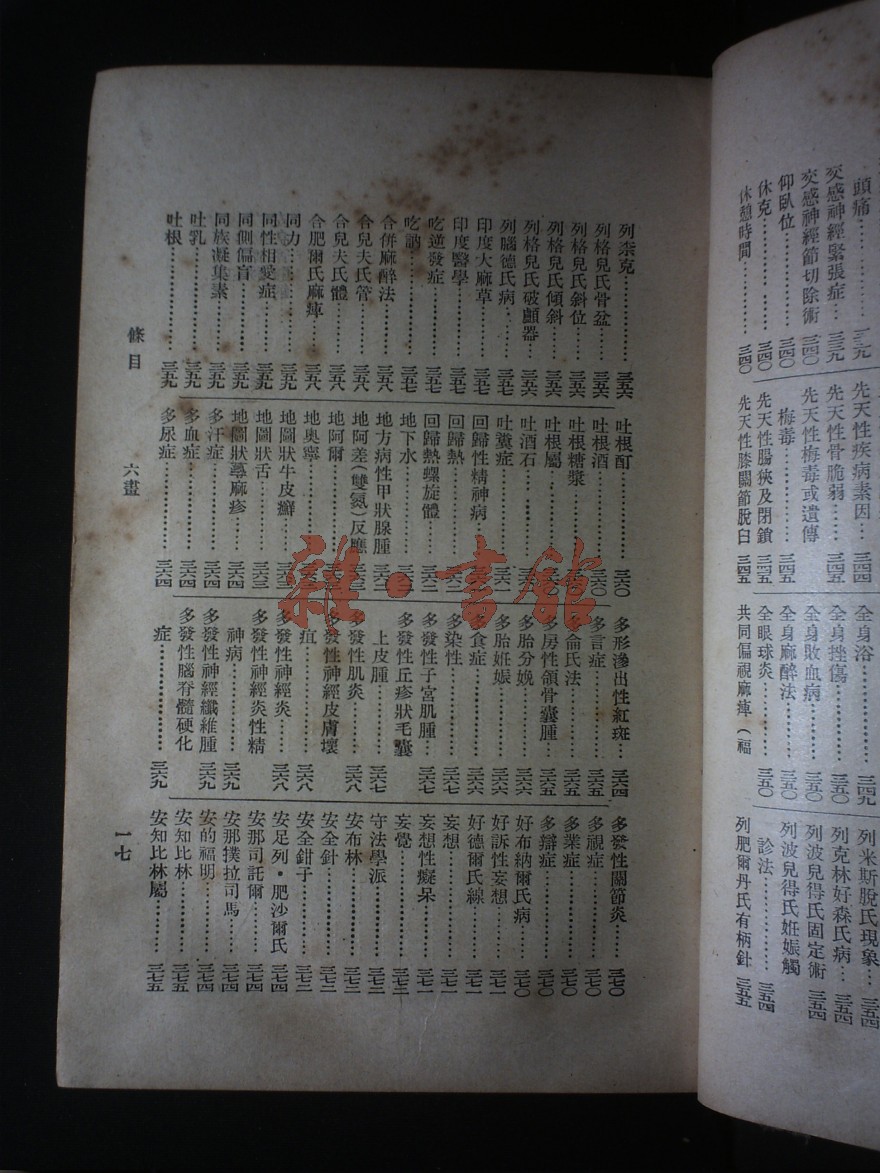 頭痛……三三九
交感神經緊張症…三三九
交感神經節切除術 三四〇
仰臥位……三四〇
休克……三四〇
休憩時間……三四〇
先天性疾病素因…三四四
先天性骨脆弱……三四四
先天性梅毒或遺傳
梅毒……三四五
先天性腸狹及閉鎖 三四五
先天性膝關節脫臼 三四五
全身浴……三四九
全身挫傷……三五〇
全身敗血病……三五〇
全身麻醉法……三五〇
全眼球炎……三五〇
共同偏視麻痺（福
列米斯脫氏現象…三五四
列克林好森氏病…三五四
列波兒得氏固定術 三五四
列波兒得氏妊娠觸
診法……三五四
列肥爾丹氏有柄針 三五五
列柰克……三五六
列格兒氏骨盆……三五六
列格兒氏斜位……三五六
列格兒氏傾斜……三五六
列格兒氏破顱器…三五六
列腦德氏病……三五七
印度大麻草……三五七
印度醫學……三五七
吃逆發症……三五七
吃訥……三五七
合併麻醉法……三五八
合兒夫氏管……三五八
合兒夫氏體……三五八
合肥爾氏麻痺……三五八
同力……三五九
同性相愛症……三五九
同側偏盲……三五九
同族凝集素……三五九
吐乳……三五九
吐根……三五九
吐根酊……三六〇
吐根酒……三六〇
吐根糖漿……三六〇
吐根屬……
吐酒石……
吐糞症……
回歸性精神病……
回歸熱……
回歸熱螺旋體……
地下水……
地方病性甲狀腺腫
地阿差(雙氮)反應
地阿爾……
地奧寧……
地圖狀牛皮癬……
地圖狀舌……三六三
地圖狀蕁麻疹……三六四
多汗症……三六四
多血症……三六四
多尿症……三六四
多形滲出性紅斑…三六四
多言症……三六五
多侖氏法……三六五
多房性頜骨囊腫…三六五
多胎分娩……三六六
多胎妊娠……三六六
多食症……三六六
多染性……三六六
多發性子宮肌腫…三六七
多發性丘疹狀毛囊
上皮腫……三六七
多發性肌炎……三六八
多發性神經皮膚壞
疽……三六八
多發性神經炎……三六八
多發性神經炎性精
神病……三六九
多發性神經纖維腫 三六九
多發性腦脊髓硬化
症……三六九
多發性關節炎……三七〇
多視症……三七〇
多業症……三七〇
多辯症……三七〇
好布納爾氏病……三七〇
好訴性妄想……三七一
好德爾氏線……三七一
妄想……三七一
妄想性癡呆……三七一
妄覺……三七二
守法學派……三七二
安布林……三七二
安全針……三七二
安全鉗子……三七三
安足列・肥沙爾氏 三七四
安那司託爾……三七四
安那撲拉司馬……三七四
安的福明……三七四
安知比林……三七五
安知比林屬……三七五
條目 六畫
一七
雜・書館